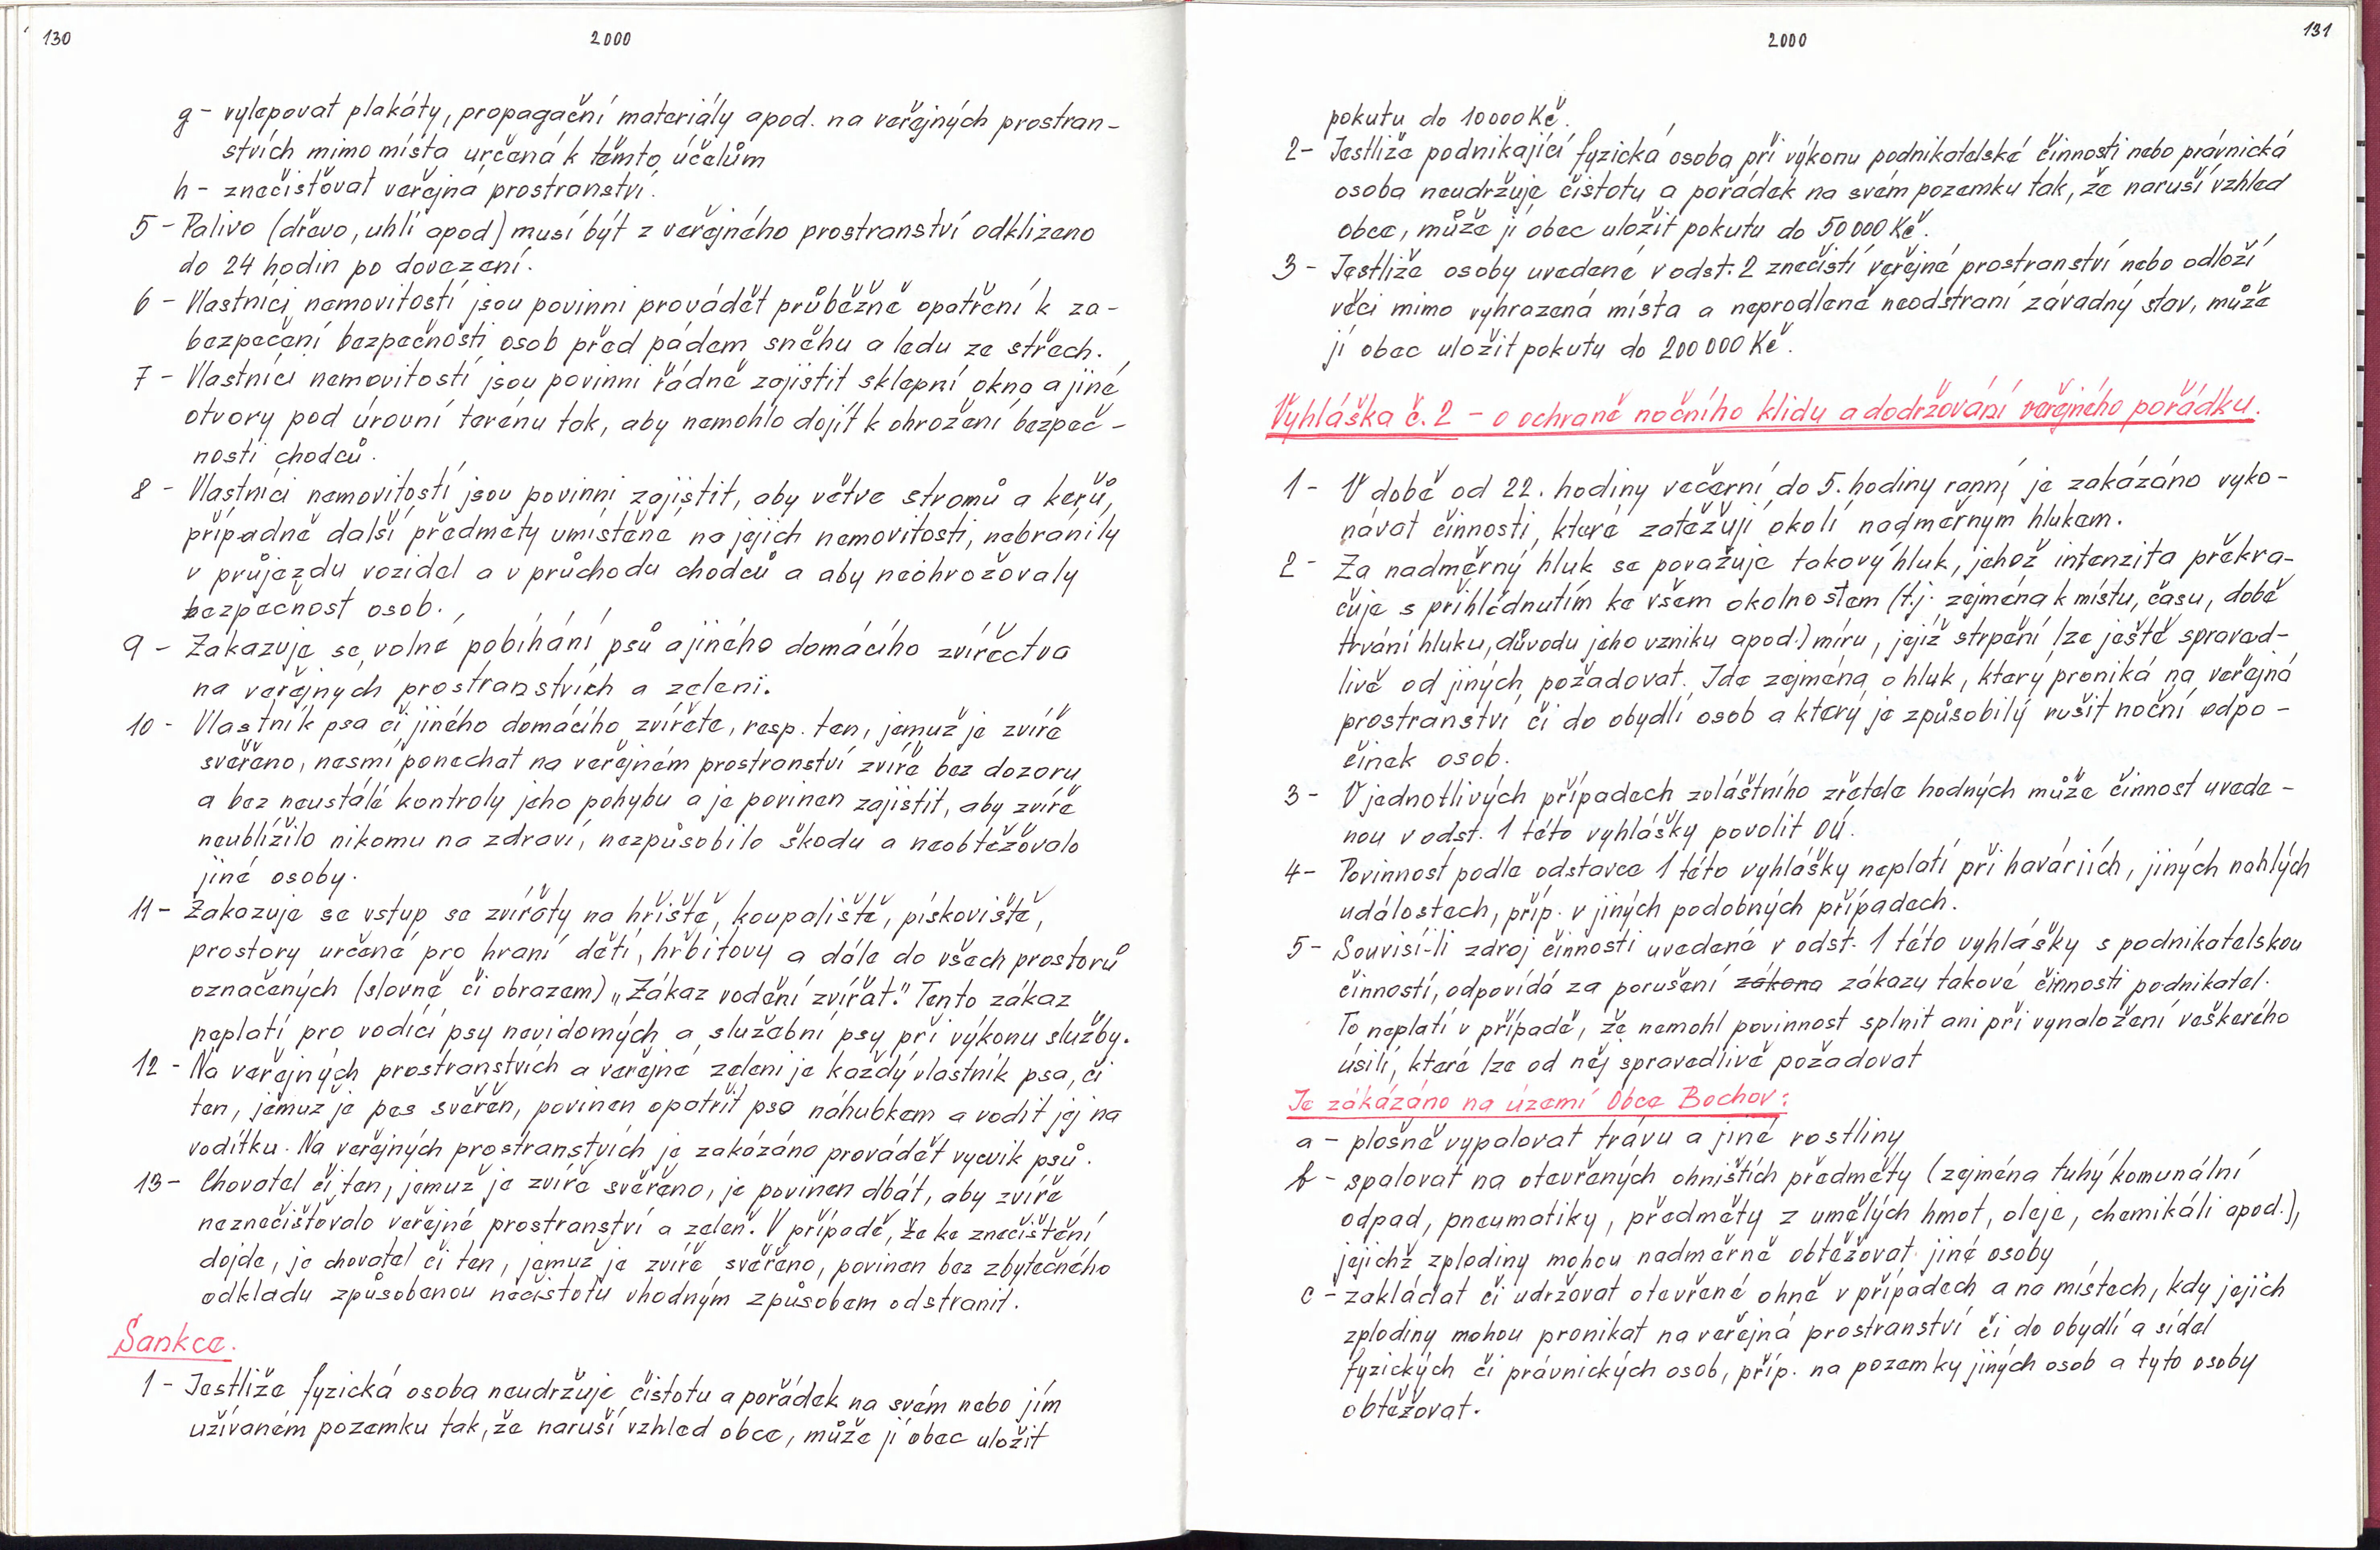 130
2000
g - vylepovat plakáty, propagační materiály apod. na veřejných prostran-
stvích mimo místa určená k těmto účelům
h - znečisťovat veřejná prostranství.
5 - Palivo (dřevo, uhlí apod) musí být z veřejného prostranství odklizeno
do 24 hodin po dovezení.
6 - Vlastníci nemovitostí jsou povinni provádět průběžně opatření k za-
bezpečení bezpečnosti osob před pádem sněhu a ledu ze střech.
7 - Vlastníci nemovitostí jsou povinni řádně zajistit sklepní okna a jiné
otvory pod úrovní terénu tak, aby nemohlo dojít k ohrožení bezpeč-
nosti chodců.
8 - Vlastníci nemovitostí jsou povinni zajistit, aby větve stromů a keřů,
případně další předměty umístěné na jejich nemovitosti, nebránily
v průjezdu vozidel a v průchodu chodců a aby neohrožovaly
bezpečnost osob.
9 - Zakazuje se volné pobíhání psů a jiného domácího zvířectva
na veřejných prostranstvích a zeleni.
10 - Vlastník psa či jiného domácího zvířete, resp. ten, jemuž je zvíře
svěřeno, nesmí ponechat na veřejném prostranství zvíře bez dozoru
a bez neustálé kontroly jeho pohybu a je povinen zajistit, aby zvíře
neublížilo nikomu na zdraví, nezpůsobilo škodu a neobtěžovalo
jiné osoby.
11 - Zakazuje se vstup se zvířaty na hřiště, koupaliště, pískoviště,
prostory určené pro hraní dětí, hřbitovy a dále do všech prostorů
označených (slovně či obrazem) „Zákaz vodění zvířat." Tento zákaz
neplatí pro vodící psy nevidomých a služební psy při výkonu služby.
12 - Na veřejných prostranstvích a veřejné zeleni je každý vlastník psa, či
ten, jemuz je pes svěřen, povinen opatřit psa náhubkem a vodit jej na
vodítku. Na veřejných prostranstvích je zakázáno provádět vycvik psů.
13 - Chovatel či ten, jemuž je zvíře svěřeno, je povinen dbát, aby zvíře
neznečišťovalo veřejné prostranství a zeleň. V případě, že ke znečištění
dojde, je chovatel či ten, jemuž je zvíře svěřeno, povinen bez zbytečného
odkladu způsobenou nečistotu vhodným způsobem odstranit.
Sankce.
1 - Jestliže fyzická osoba neudržuje čistotu a pořádek na svém nebo jím
užívaném pozemku tak, že naruší vzhled obce, může jí obec uložit
131
2000
pokutu do 10000 Kč.
2 - Jestliže podnikající fyzická osoba při výkonu podnikatelské činnosti nebo právnická
osoba neudržuje čistotu a pořádek na svém pozemku tak, že naruší vzhled
obce, může jí obec uložit pokutu do 50 000 Kč.
3 - Jestliže osoby uvedené v odst. 2 znečistí veřejné prostranství nebo odloží
věci mimo vyhrazená místa a neprodleně neodstraní závadný stav, může
jí obec uložit pokutu do 200 000 Kč.
Vyhláška č. 2 - o ochraně nočního klidu a dodržování veřejného pořádku.
1 - V době od 22. hodiny večerní do 5. hodiny ranní je zakázáno vyko-
návat činnosti, které zatěžují okolí nadměrným hlukem.
2 - Za nadměrný hluk se považuje takový hluk, jehož intenzita překra-
čuje s přihlédnutím ke všem okolnostem (t.j. zejména k místu, času, době
trvání hluku, důvodu jeho vzniku apod.) míru, jejíž strpění lze ještě spraved-
livě od jiných požadovat. Jde zejména o hluk, který proniká na veřejná
prostranství či do obydlí osob a který je způsobilý rušit noční odpo-
činek osob.
3 - V jednotlivých případech zvláštního zřetele hodných může činnost uvede-
nou v odst. 1 této vyhlášky povolit OÚ.
4 - Povinnost podle odstavce 1 této vyhlášky neplatí při haváriích, jiných náhlých
událostech, příp. v jiných podobných případech.
5 - Souvisí-li zdroj činnosti uvedené v odst. 1 této vyhlášky s podnikatelskou
činností, odpovídá za porušení zákona zákazu takové činnosti podnikatel.
To neplatí v případě, že nemohl povinnost splnit ani při vynaložení veškerého
úsilí, které lze od něj spravedlivě požadovat
Je zákázáno na území Obce Bochov:
a - plošně vypalovat trávu a jiné rostliny
b - spalovat na otevřených ohništích předměty (zejména tuhý komunální
odpad, pneumatiky, předměty z umělých hmot, oleje, chemikáli apod.),
jejichž zplodiny mohou nadměrně obtěžovat jiné osoby
c - zakládat či udržovat otevřené ohně v případech a na místech, kdy jejich
zplodiny mohou pronikat na veřejná prostranství či do obydlí a sídel
fyzických či právnických osob, příp. na pozemky jiných osob a tyto osoby
obtěžovat.